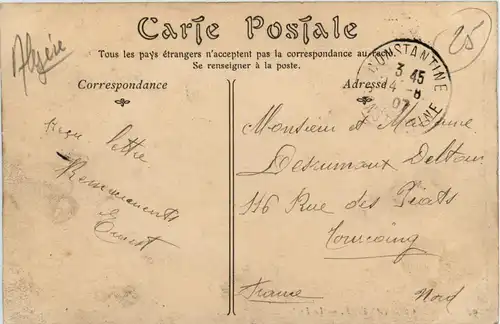 Algérie
25
Carte Postale
Tous les pays étrangers n'acceptent pas la correspondance au recto.
Se renseigner à la poste.
Correspondance
Adresse
CONSTANTINE
3 45
4 - 8
07
reçu lettre
Remerciements
Ernest
Monsieur et Madame
Descumaux Deltour
116 Rue des Piats
Tourcoing
France
Nord